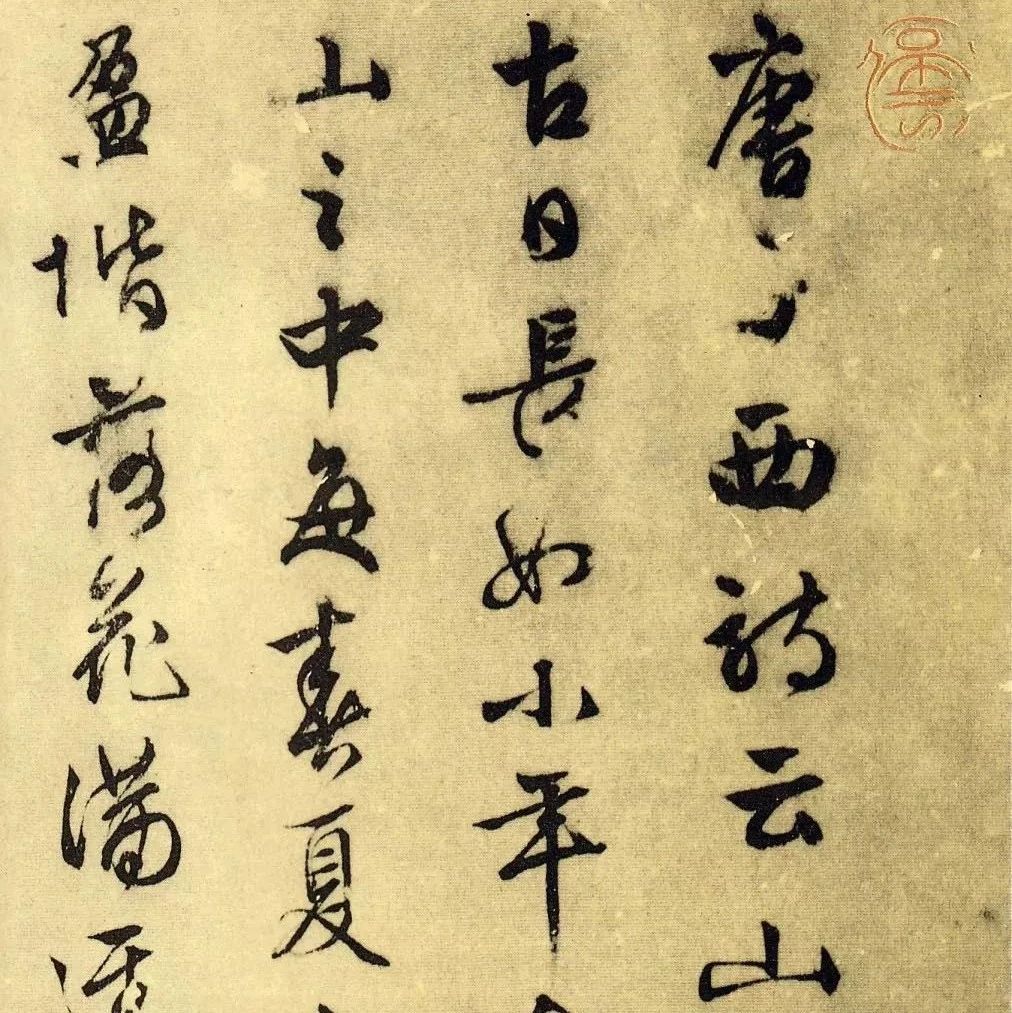 唐子西詩云山
古日長如小年
山之中每春夏
盈堦落花滿